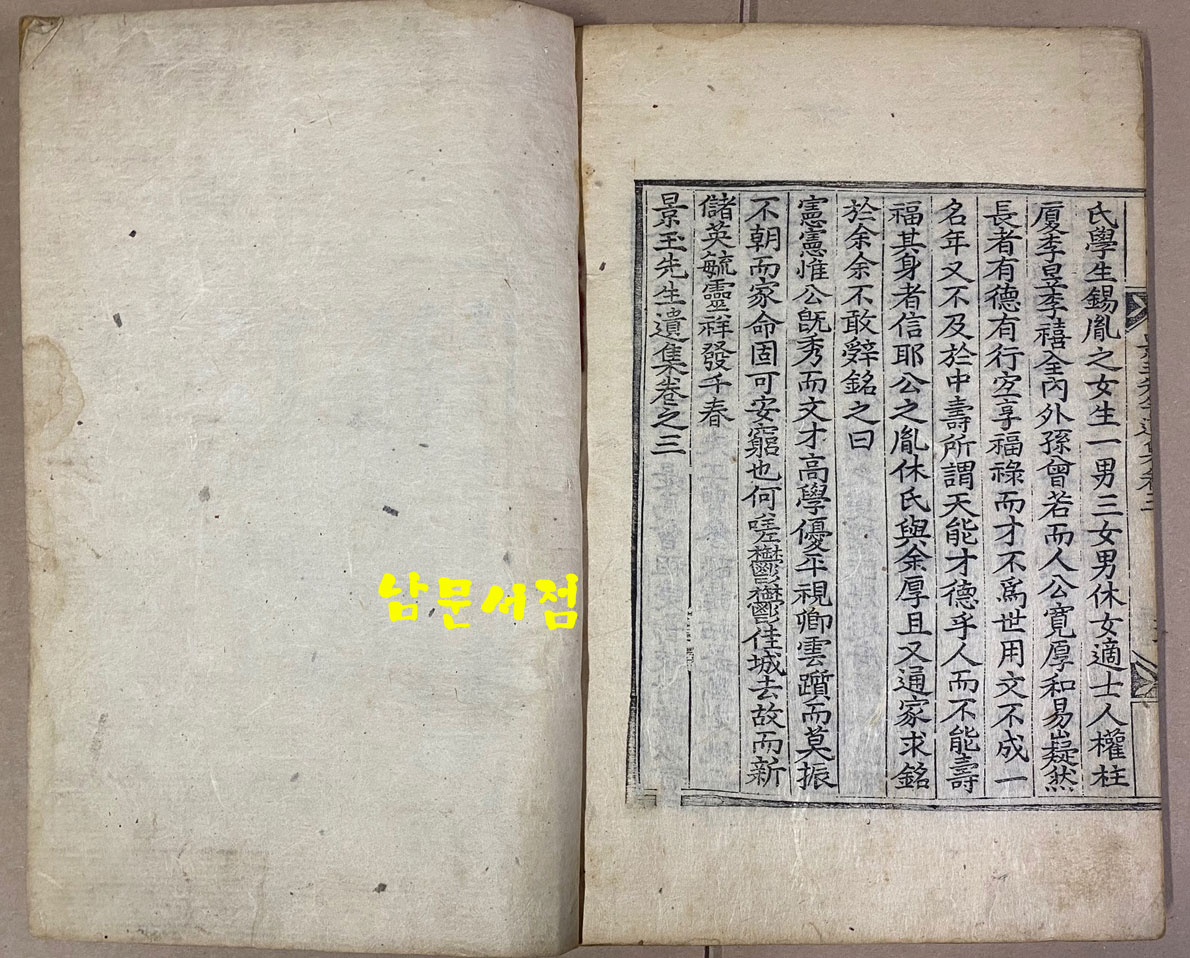 氏學生錫胤之女生一男三女男休女適士人權柱
厦李昱李禧全內外孫曾若而人公寬厚和易嶷然
長者有德有行宜享福祿而才不爲世用文不成一
名年又不及於中壽所謂天能才德乎人而不能壽
福其身者信耶公之胤休氏與余厚且又通家求銘
於余余不敢辤銘之曰
憲憲惟公旣秀而文才高學優平視卿雲躓而莫振
不朝而家命固可安窮也何嗟鬱鬱佳城去故而新
儲英毓靈祥發千春
景玉先生遺集卷之三
남문서점